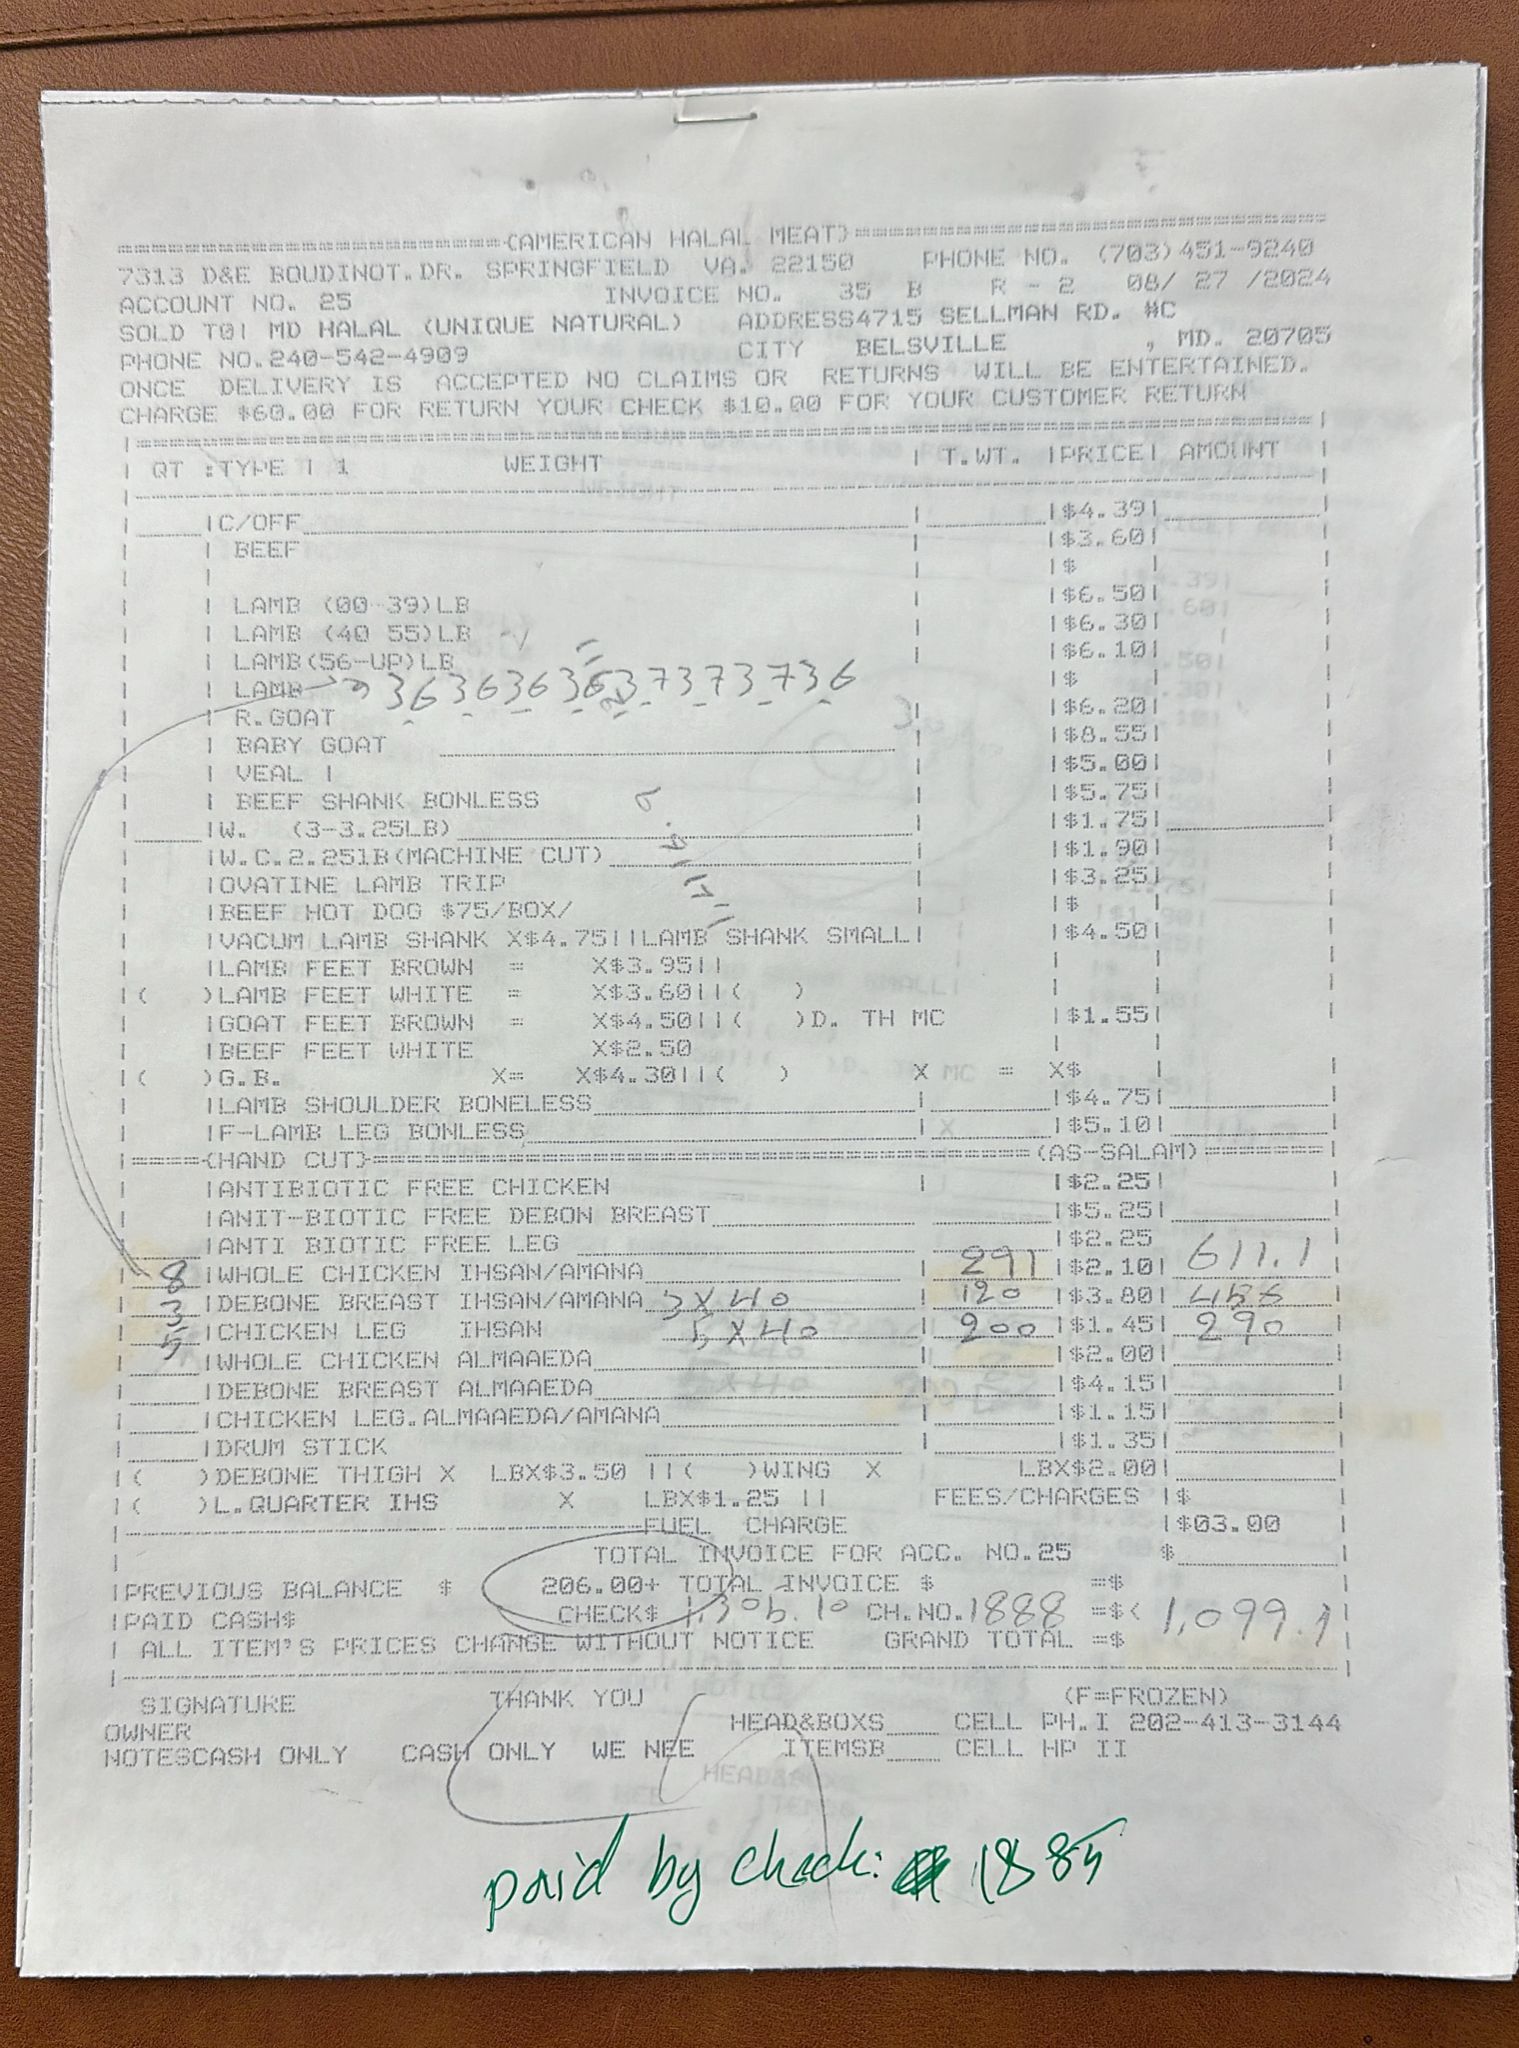 (AMERICAN HALAL MEAT)
7313 D&E BOUDINOT.DR. SPRINGFIELD VA. 22150 PHONE NO. (703)451-9240
ACCOUNT NO. 25 INVOICE NO. 35 B R - 2 08/ 27 /2024
SOLD TO| MD HALAL (UNIQUE NATURAL) ADDRESS4715 SELLMAN RD. #C
PHONE NO.240-542-4909 CITY BELSVILLE , MD. 20705
ONCE DELIVERY IS ACCEPTED NO CLAIMS OR RETURNS WILL BE ENTERTAINED.
CHARGE $60.00 FOR RETURN YOUR CHECK $10.00 FOR YOUR CUSTOMER RETURN
| QT :TYPE | 1 WEIGHT | T.WT. |PRICE| AMOUNT |
|C/OFF |$4.39|
| BEEF |$3.60|
|$ |
| LAMB (00-39)LB |$6.50|
| LAMB (40 55)LB |$6.30|
| LAMB(56-UP)LB |$6.10|
| LAMB 36 36 36 36 37 37 37 36 |$ |
| R.GOAT |$6.20|
| BABY GOAT |$8.55|
| VEAL | |$5.00|
| BEEF SHANK BONLESS |$5.75|
|W. (3-3.25LB) |$1.75|
|W.C.2.251B(MACHINE CUT) |$1.90|
|OVATINE LAMB TRIP |$3.25|
|BEEF HOT DOG $75/BOX/ |$ |
|VACUM LAMB SHANK X$4.75||LAMB SHANK SMALL| |$4.50|
|LAMB FEET BROWN = X$3.95||
|( )LAMB FEET WHITE = X$3.60||( )
|GOAT FEET BROWN = X$4.50||( )D. TH MC |$1.55|
|BEEF FEET WHITE X$2.50
|( )G.B. X= X$4.30||( ) X MC = X$ |
|LAMB SHOULDER BONELESS |$4.75|
|F-LAMB LEG BONLESS X |$5.10|
|=====(HAND CUT)=====(AS-SALAM)=======|
|ANTIBIOTIC FREE CHICKEN |$2.25|
|ANIT-BIOTIC FREE DEBON BREAST |$5.25|
|ANTI BIOTIC FREE LEG |$2.25
8 |WHOLE CHICKEN IHSAN/AMANA 291 |$2.10| 611.1
3 |DEBONE BREAST IHSAN/AMANA 3 X 40 120 |$3.80| 456
5 |CHICKEN LEG IHSAN 5 X 40 200 |$1.45| 290
|WHOLE CHICKEN ALMAAEDA |$2.00|
|DEBONE BREAST ALMAAEDA |$4.15|
|CHICKEN LEG.ALMAAEDA/AMANA |$1.15|
|DRUM STICK |$1.35|
|( )DEBONE THIGH X LBX$3.50 ||( )WING X LBX$2.00|
|( )L.QUARTER IHS X LBX$1.25 || FEES/CHARGES |$
FUEL CHARGE |$03.00
TOTAL INVOICE FOR ACC. NO.25 $
|PREVIOUS BALANCE $ 206.00+ TOTAL INVOICE $ =$
|PAID CASH$ CHECK$ 1,306.10 CH.NO.1888 =$< 1,099.1
| ALL ITEM'S PRICES CHANGE WITHOUT NOTICE GRAND TOTAL =$
SIGNATURE THANK YOU (F=FROZEN)
OWNER HEAD&BOXS CELL PH.I 202-413-3144
NOTESCASH ONLY CASH ONLY WE NEE ITEMSB CELL HP II
paid by check: 1885